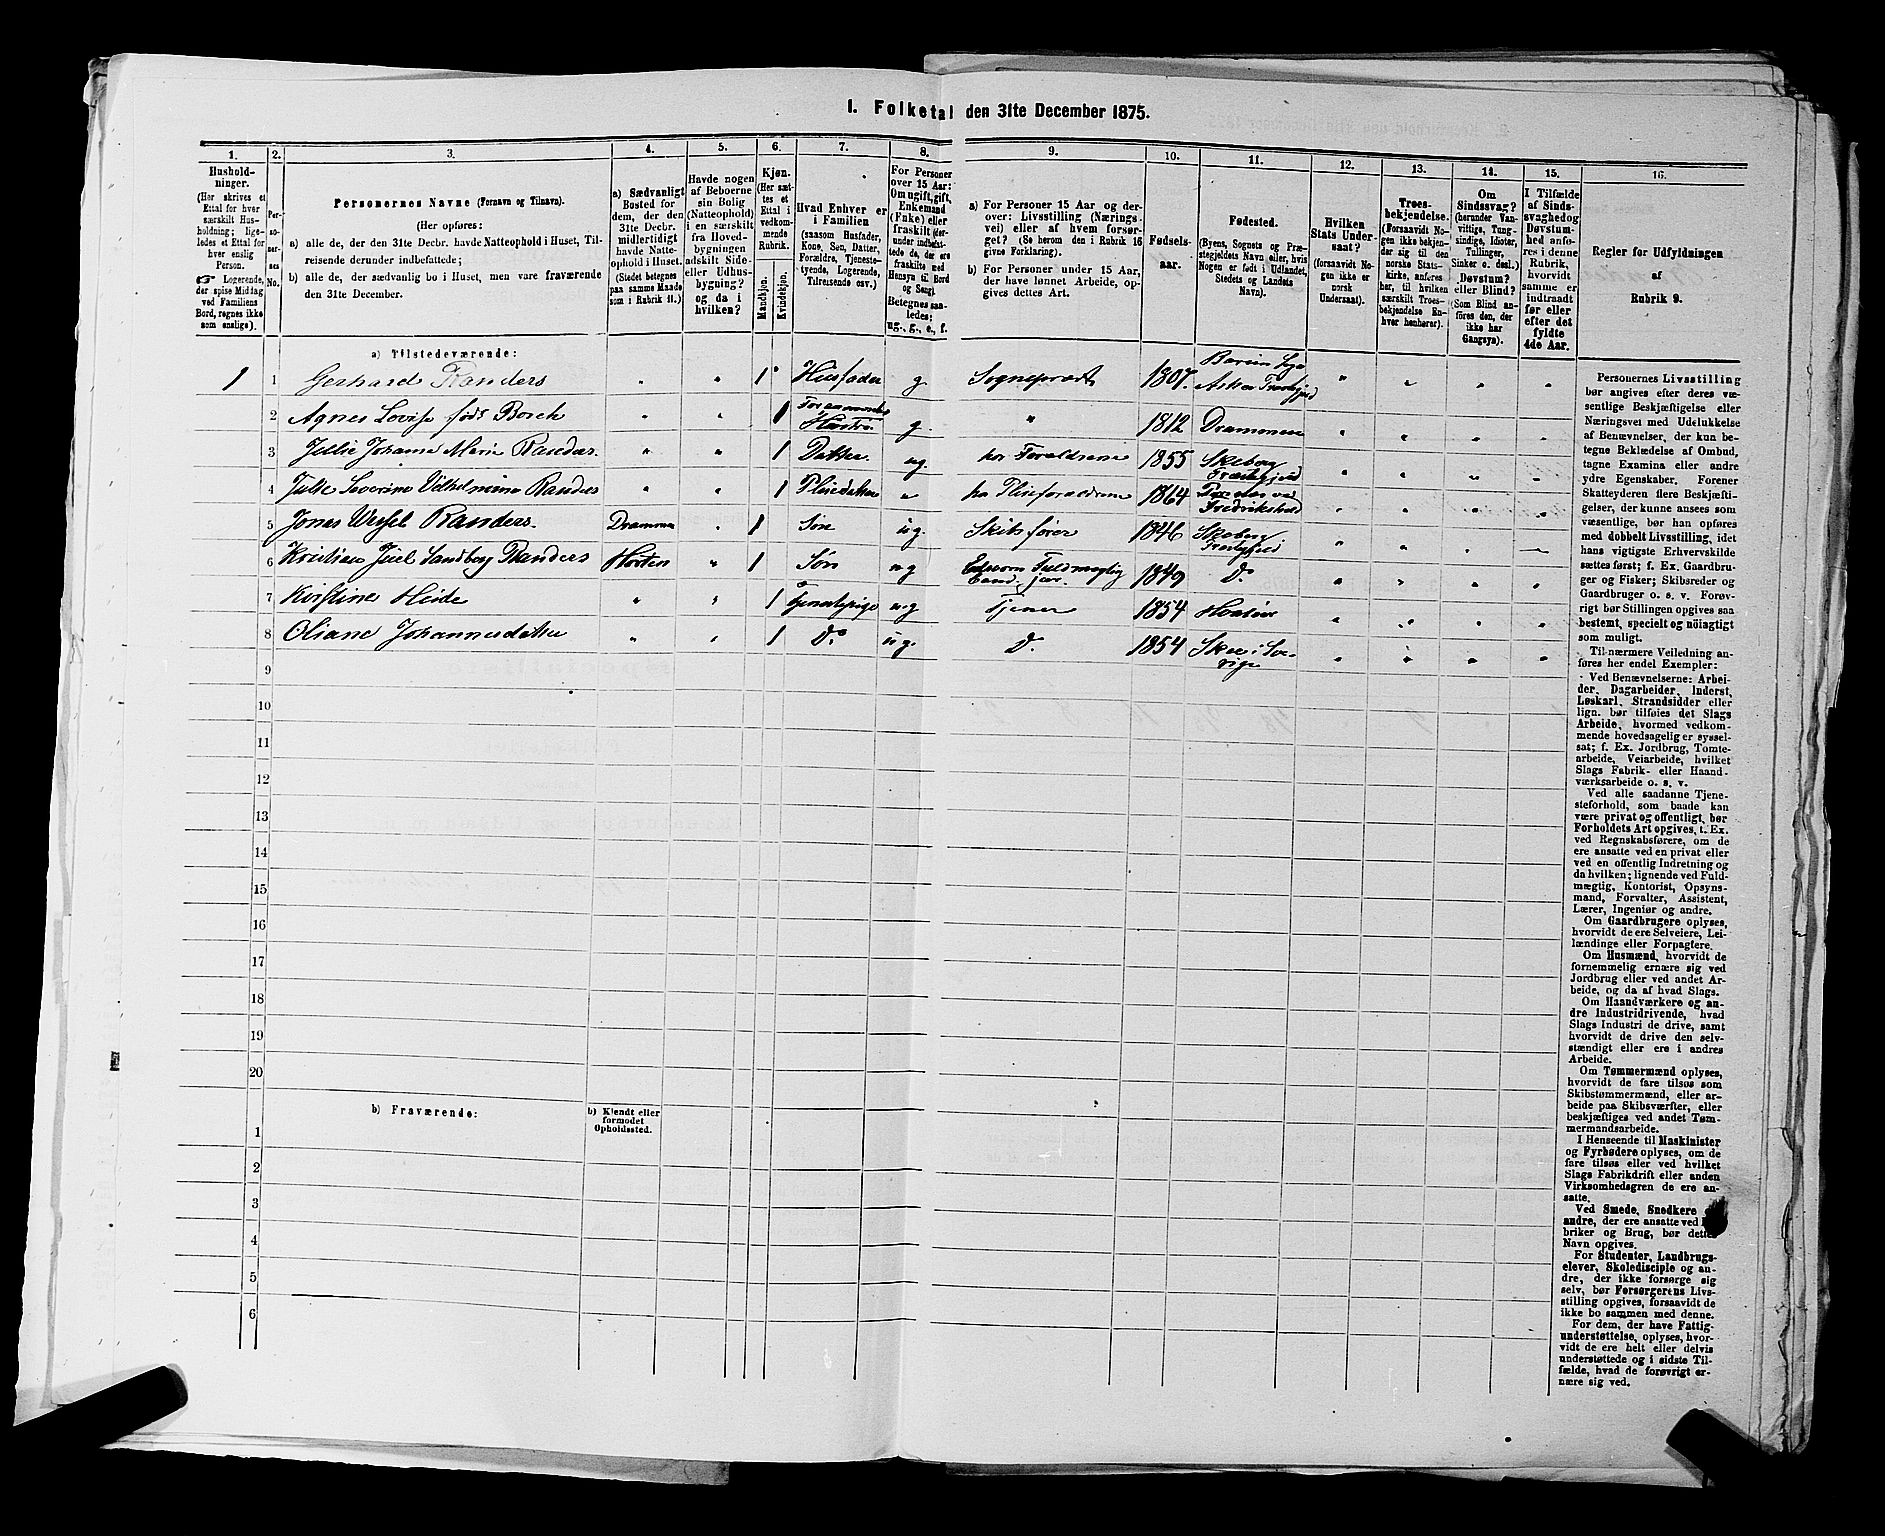 I. Folketal den 31te December 1875.
1. 2. 3. 4. 5. 6. 7. 8. 9. 10. 11. 12. 13. 14. 15. 16.
Hushold-
ninger.
(Her skrives et
Ettal for hver
særskilt Hus-
holdning; lige-
ledes et Ettal for
hver enslig
Person.
Logerende,
der spise Middag
ved Familiens
Bord, regnes ikke
som enslige).
Per-
so-
ner-
nes
No.
Personernes Navne (Fornavn og Tilnavn).
(Her opføres:
a) alle de, der den 31te Decbr. havde Natteophold i Huset, Til-
reisende derunder indbefattede;
b) alle de, der sædvanlig bo i Huset, men vare fraværende
den 31te December.
a) Sædvanligt
Bosted for
dem, der den
31te Decbr.
midlertidigt
havde Natte-
ophold i Huset.
(Stedet betegnes
paa samme Maade
som i Rubrik 11.)
Havde nogen
af Beboerne
sin Bolig
(Natteophold)
i en særskilt
fra Hoved-
bygningen
adskilt Side-
eller Udhus-
bygning?
og da i
hvilken?
Kjøn.
(Her sæt-
tes et
Ettal i
vedkom-
mende
Rubrik.
Mandkjøn.
Kvindekjøn.
Hvad Enhver er
i Familien
(saasom Husfader,
Kone, Søn, Datter,
Forældre, Tjeneste-
tyende, Logerende,
Tilreisende osv.)
For Personer
over 15 Aar:
Om ugift, gift,
Enkemand
(Enke) eller
fraskilt (der-
under indbefat-
tede de, der ere
fraskilte med
Hensyn til Bord
og Seng).
Betegnes saa-
ledes:
ug., g., e., f.
a) For Personer 15 Aar og der-
over: Livsstilling (Nærings-
vei) eller af hvem forsør-
get? (Se herom den i Rubrik 16
givne Forklaring).
b) For Personer under 15 Aar,
der have lønnet Arbeide, op-
gives dettes Art.
Fødsels-
aar.
Fødested.
(Byens, Sognets og Præ-
stegjeldets Navn eller, hvis
Nogen er født i Udlandet,
Stedets og Landets
Navn).
Hvilken
Stats Under-
saat?
(forsaavidt No-
gen ikke er
norsk
Undersaat).
Troes-
bekjendelse.
(Forsaavidt No-
gen ikke bekjen-
der sig til den
norske Stats-
kirke, anføres
her, til hvilken
særskilt Troes-
bekjendelse En-
hver henhører).
Om
Sindssvag?
(herunder Van-
vittige, Tung-
sindige, Idioter,
Tullinger,
Sinker o. desl.)
Døvstum?
eller Blind?
(Som Blind an-
føres den, der
ikke har
Gangsyn).
I Tilfælde
af Sinds-
svaghed og
Døvstum-
hed anfø-
res i denne
Rubrik,
hvorvidt
samme er
indtraadt
før eller
efter det
fyldte
4de Aar.
Regler for Udfyldningen
af
Rubrik 9.
a) Tilstedeværende:
1 1 Gerhard Randers " " 1 Husfader g. Sogneprest 1807. " " " "
2 Agnes Lovise født Borch " " 1 Hustru g. " 1812 Drammen " " " "
3 Julie Johanne Marie Randers. " " 1 Datter. ug. hos Forældrene 1855 Skeberg Præstegjeld " " " "
4 Julie Severine Vilhelmine Randers " " 1 Pleiedatter " hos Pleieforældrene 1864 Fredrikshald " " " "
5 Jonas Wessel Randers. Drammen " 1 Søn ug. Skibsfører 1846 Skeberg Præstegjeld " " " "
6 Kristian Juel Sandberg Randers Horten " 1 Søn ug 1849 Do. " " " "
7 Kirstine Heide " " 1 Tjenestepige ug Tjener 1854 " " " "
8 Oliane Johannesdatter " " 1 Do ug. Do. 1854 Skee i Sverige " " " "
9
10
11
12
13
14
15
16
17
18
19
20
b) Fraværende:
b) Kjendt eller
formodet
Opholdssted.
1
2
3
4
5
6
Personernes Livsstilling
bør angives efter deres væ-
sentlige Beskjæftigelse eller
Næringsvei med Udelukkelse
af Benævnelser, der kun be-
tegne Beklædelse af Ombud,
tagne Examina eller andre
ydre Egenskaber. Forener
Skatteyderen flere Beskjæfti-
gelser, der kunne ansees som
væsentlige, bør han opføres
med dobbelt Livsstilling, idet
hans vigtigste Erhvervskilde
sættes først; f. Ex. Gaardbru-
ger og Fisker; Skibsreder og
Gaardbruger o. s. v. Forøv-
rigt bør Stillingen opgives saa
bestemt, specielt og nöiagtigt
som muligt.
Til nærmere Veiledning an-
føres her endel Exempler:
Ved Benævnelserne: Arbei-
der, Dagarbeider, Inderst,
Løskarl, Strandsidder eller
lign. bør tilføies det Slags
Arbeide, hvormed vedkom-
mende hovedsagelig er syssel-
sat; f. Ex. Jordbrug, Tomte-
arbeide, Veiarbeide, hvilket
Slags Fabrik- eller Haand-
værksarbeide o. s. v.
Ved alle saadanne Tjene-
steforhold, som baade kan
være privat og offentligt, bør
Forholdets Art opgives, t. Ex.
ved Regnskabsførere, om de
ere ansatte ved en privat eller
ved en offentlig Indretning og
da hvilken; lignende ved Fuld-
mægtig, Kontorist, Opsyns-
mand, Forvalter, Assistent,
Lærer, Ingeniør og andre.
Om Gaardbrugere oplyses,
hvorvidt de ere Selveiere, Lei-
lændinge eller Forpagtere.
Om Husmænd, hvorvidt de
fornemmelig ernære sig ved
Jordbrug eller ved andet Ar-
beide, og da af hvad Slags.
Om Haandværkere og an-
dre Industridrivende, hvad
Slags Industri de drive, samt
hvorvidt de drive den selv-
stændigt eller ere i andres
Arbeide.
Om Tømmermænd oplyses,
hvorvidt de fare tilsøs som
Skibstømmermænd, eller ar-
beide paa Skibsværfter, eller
beskjæftiges ved andet Tøm-
mermandsarbeide.
I Henseende til Maskinister
og Fyrbødere oplyses, om de
fare tilsøs eller ved hvilket
Slags Fabrikdrift eller anden
Virksomhedsgren de ere an-
satte.
Ved Smede, Snedkere
andre, der ere ansatte ved
briker og Brug, bør dettes
Navn opgives.
For Studenter, Landbrugs-
elever, Skoledisciple og an-
dre, der ikke forsørge sig
selv, bør Forsørgerens Livs-
stilling opgives, forsaavidt de
ikke bo sammen med denne.
For dem, der have Fattig-
understøttelse, oplyses, hvor-
vidt de ere helt eller delvis
understøttede og i sidste Til-
fælde, hvad de forøvrigt er-
nære sig ved.